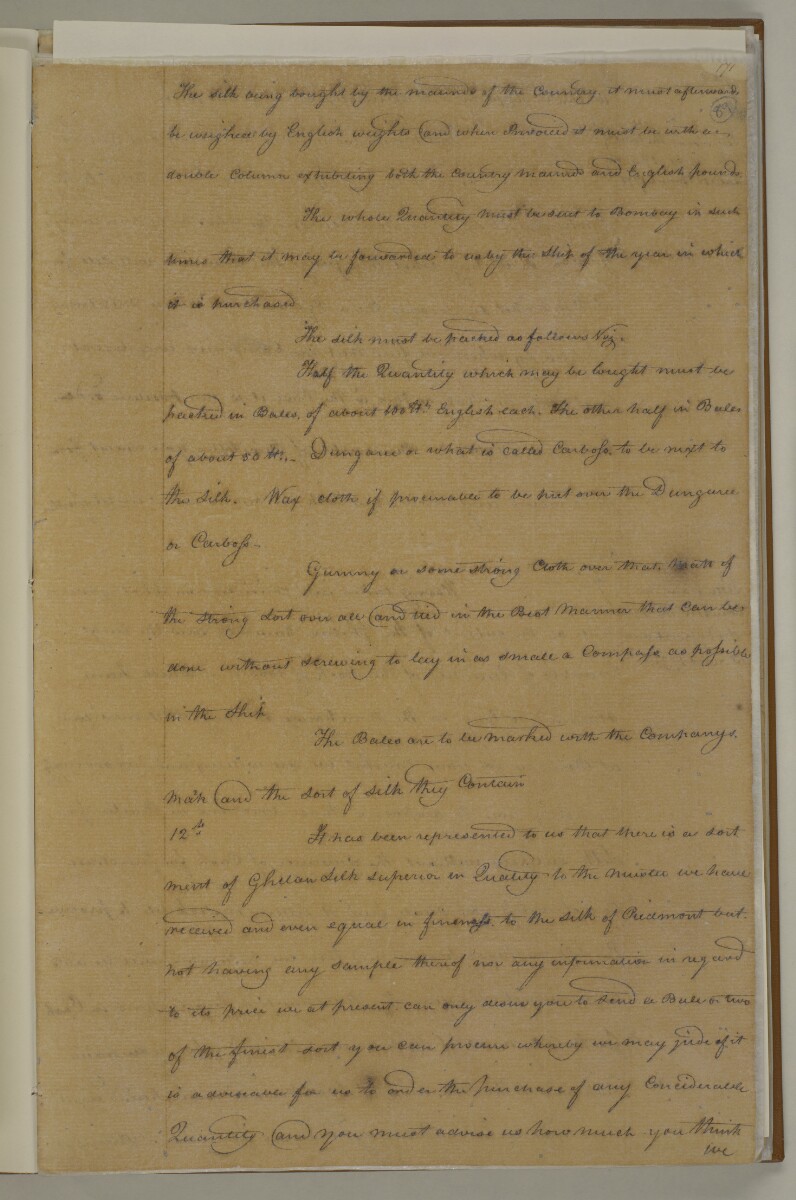 The silk being bought by the maunds of the Country, it must afterwards
be weighed by English weights (and when Invoiced it must be with a
double Column exhibiting both the Country maunds and English pounds
The whole Quantity must be sent to Bombay in such
times that it may be forwarded to us by the Ship of the year in which
it is purchased
The silk must be packed as follows Viz.
Half the Quantity which may be bought must be
packed in Bales, of about 100 lbs English each. The other half in Bales
of about 50 lbs. Dungaree or what is called Carboss, to be next to
the silk. Wax cloth if procurable to be put over the Dungaree
or Carboss.
Gunny or some strong Cloth over that. of
the strong sort over all (and tied in the Best Manner that can be
done without screwing to lay in as small a Compass as possible
in the Ship
The Bales are to be marked with the Companys.
Mark (and the sort of silk they Contain
12th It has been represented to us that there is a sort
ment of Ghelan Silk superior in Quality to the we have
received and even equal in fineness to the silk of Piedmont but
not having any sample thereof nor any information in regard
to its price we at present can only desire you to send a Bale or two
of the finest sort you can procure whereby we may jude if it
is adviseable for us to order the purchase of any Conciderable
Quantity (and you must advise us how much you think
we